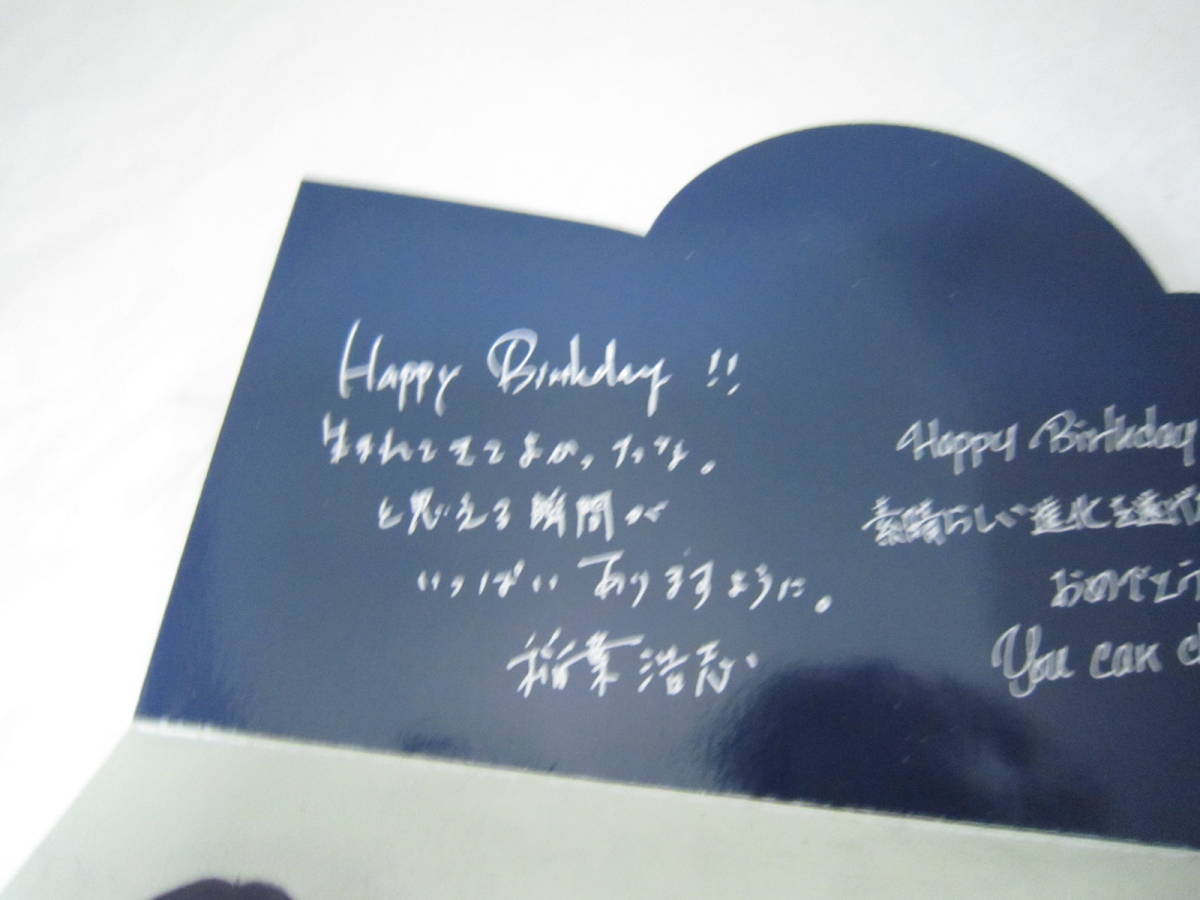 Happy Birthday !!
生まれてきてよかったな。
と思える瞬間が
いっぱいありますように。
稲葉浩志
Happy Birthday
素晴らしい進化を遂げ
おめでとう
You can